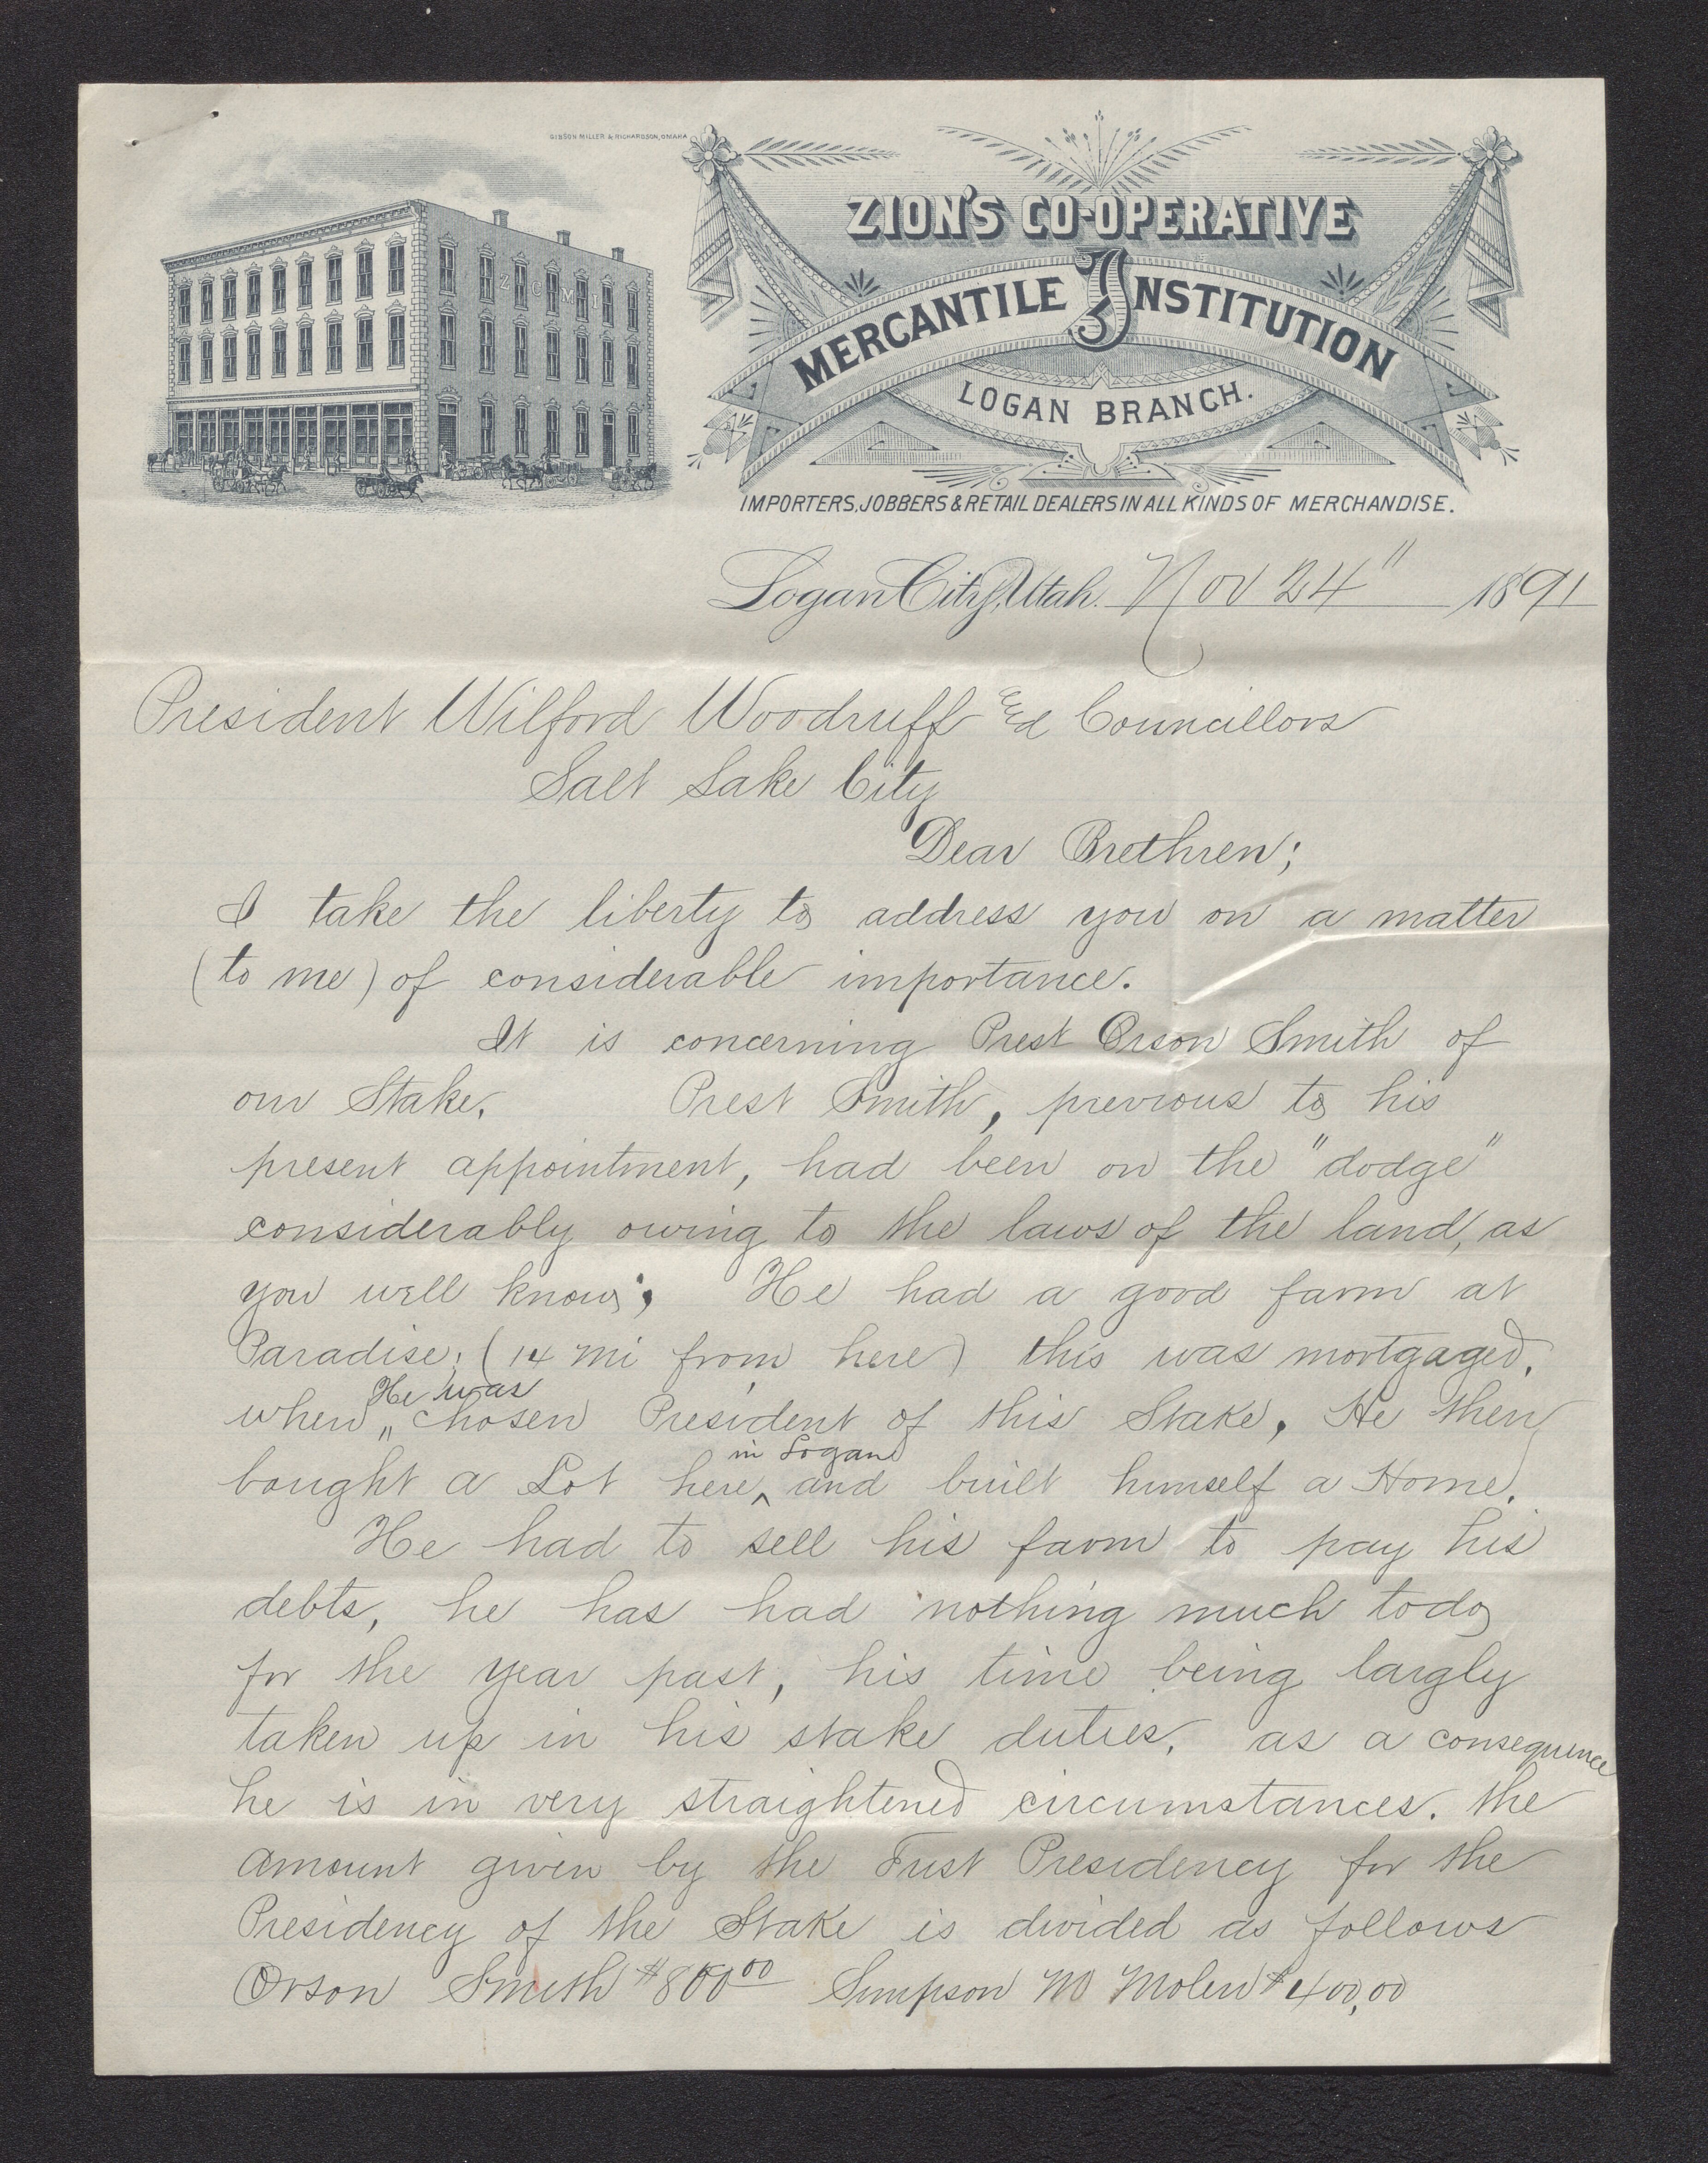 GIBSON MILLER & RICHARDSON, OMAHA
Z C M I
ZION'S CO-OPERATIVE
MERCANTILE INSTITUTION
LOGAN BRANCH.
IMPORTERS, JOBBERS & RETAIL DEALERS IN ALL KINDS OF MERCHANDISE.
Logan City, Utah. Nov 24" 1891
President Wilford Woodruff & Councillors
Salt Lake City
Dear Brethren;
I take the liberty to address you on a matter
(to me) of considerable importance.
It is concerning Prest Orson Smith of
our Stake. Prest Smith, previous to his
present appointment, had been on the "dodge"
considerably owing to the laws of the land, as
you well know; He had a good farm at
Paradise; (14 mi from here) this was mortgaged,
He was
when chosen President of this Stake. He then
in Logan
bought a Lot here, ^ and built himself a Home.
He had to sell his farm to pay his
debts, he has had nothing much to do
for the year past, his time being largly
taken up in his stake duties. as a consequence
he is in very straightened circumstances. the
amount given by the First Presidency for the
Presidency of the Stake is divided as follows
Orson Smith $800 00 Simpson M Molen $400,00